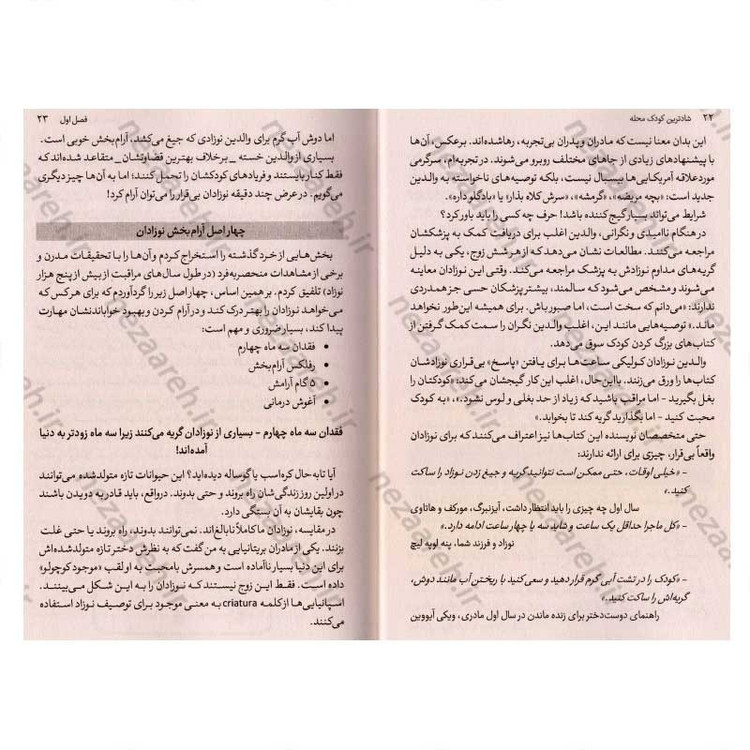 ۲۲ شادترین کودک محله
این بدان معنا نیست که مادران و پدران بی‌تجربه، رها شده‌اند. برعکس، آن‌ها
با پیشنهادهای زیادی از جاهای مختلف روبرو می‌شوند. در تجربه‌ام، سرگرمی
مورد علاقه آمریکایی‌ها بیسبال نیست، بلکه توصیه‌های ناخواسته به والدین
جدید است: «بچه مریضه»، «گرمشه»، «سرش کلاه بذار» یا «بادگلو داره».
شرایط می‌تواند بسیار گیج کننده باشد! حرف چه کسی را باید باور کرد؟
در هنگام ناامیدی و نگرانی، والدین اغلب برای دریافت کمک به پزشکشان
مراجعه می‌کنند. مطالعات نشان می‌دهد که از هر شش زوج، یکی به دلیل
گریه‌های مداوم نوزادش به پزشک مراجعه می‌کند. وقتی این نوزادان معاینه
می‌شوند و مشخص می‌شود که سالمند، بیشتر پزشکان حسی جز همدردی
ندارند: «می‌دانم که سخت است، اما صبور باش. برای همیشه این‌طور نخواهد
ماند.» توصیه‌هایی مانند این، اغلب والدین نگران را سمت کمک گرفتن از
کتاب‌های بزرگ کردن کودک سوق می‌دهد.
والدین نوزادان کولیکی ساعت‌ها برای یافتن «پاسخ» بی‌قراری نوزادشان
کتاب‌ها را ورق می‌زنند. با این‌حال، اغلب این کار گیجشان می‌کند: «کودکتان را
بغل بگیرید – اما مراقب باشید که زیاد از حد بغلی و لوس نشود.»، «به کودک
محبت کنید – اما بگذارید گریه کند تا بخوابد.»
حتی متخصصان نویسنده این کتاب‌ها نیز اعتراف می‌کنند که برای نوزادان
واقعاً بی‌قرار، چیزی برای ارائه ندارند:
– «خیلی اوقات، حتی ممکن است نتوانید گریه و جیغ زدن نوزاد را ساکت
کنید.»
سال اول چه چیزی را باید انتظار داشت، آیزنبرگ، مورکف و هاتاوی
– «کل ماجرا حداقل یک ساعت و شاید سه یا چهار ساعت ادامه دارد.»
نوزاد و فرزند شما، پنه لوپه لیچ
– «کودک را در تشت آبی گرم قرار دهید و سعی کنید با ریختن آب مانند دوش،
گریه‌اش را ساکت کنید.»
راهنمای دوست‌دختر برای زنده ماندن در سال اول مادری، ویکی آیووین
فصل اول ۲۳
اما دوش آب گرم برای والدین نوزادی که جیغ می‌کشد، آرام‌بخش خوبی است.
بسیاری از والدین خسته _ برخلاف بهترین قضاوتشان _ متقاعد شده‌اند که
فقط کنار بایستند و فریادهای کودکشان را تحمل کنند؛ اما به آن‌ها چیز دیگری
می‌گویم. در عرض چند دقیقه نوزادان بی‌قرار را می‌توان آرام کرد!
چهار اصل آرام‌بخش نوزادان
بخش‌هایی از خرد گذشته را استخراج کردم و آن‌ها را با تحقیقات مدرن و
برخی از مشاهدات منحصربه‌فرد (در طول سال‌های مراقبت از بیش از پنج هزار
نوزاد) تلفیق کردم. بر همین اساس، چهار اصل زیر را گردآوردم که برای هر کس که
می‌خواهد نوزادان را بهتر درک کند و در آرام کردن و بهبود خواباندنشان مهارت
پیدا کند، بسیار ضروری و مهم است:
• فقدان سه ماه چهارم
• رفلکس آرام‌بخش
• ۵ گام آرامش
• آغوش درمانی
فقدان سه ماه چهارم – بسیاری از نوزادان گریه می‌کنند زیرا سه ماه زودتر به دنیا
آمده‌اند!
آیا تا به حال کره اسب یا گوساله دیده‌اید؟ این حیوانات تازه متولد شده می‌توانند
در اولین روز زندگی‌شان راه بروند و حتی بدوند. در واقع، باید قادر به دویدن باشند
چون بقایشان به آن بستگی دارد.
در مقایسه، نوزادان ما کاملاً نابالغ‌اند. نمی‌توانند بدوند، راه بروند یا حتی غلت
بزنند. یکی از مادران بریتانیایی به من گفت که به نظرش دختر تازه متولد شده‌اش
برای این دنیا بسیار ناآماده است و همسرش با محبت به او لقب «موجود کوچولو»
داده است. فقط این زوج نیستند که نوزادان را به این شکل می‌بینند.
اسپانیایی‌ها از کلمه criatura به معنی موجود برای توصیف نوزاد استفاده
می‌کنند.
nezaareh.ir